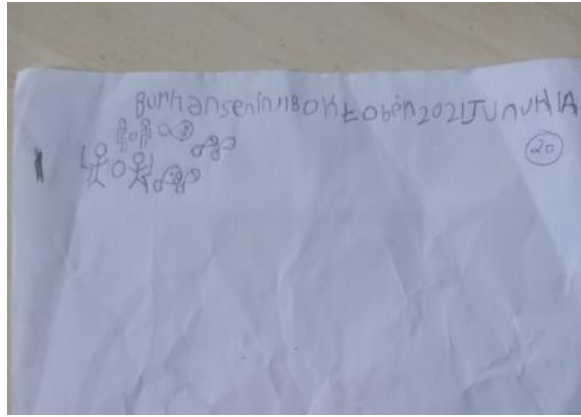 Burhansenin18Oktober2021JUnUHIA
20
1